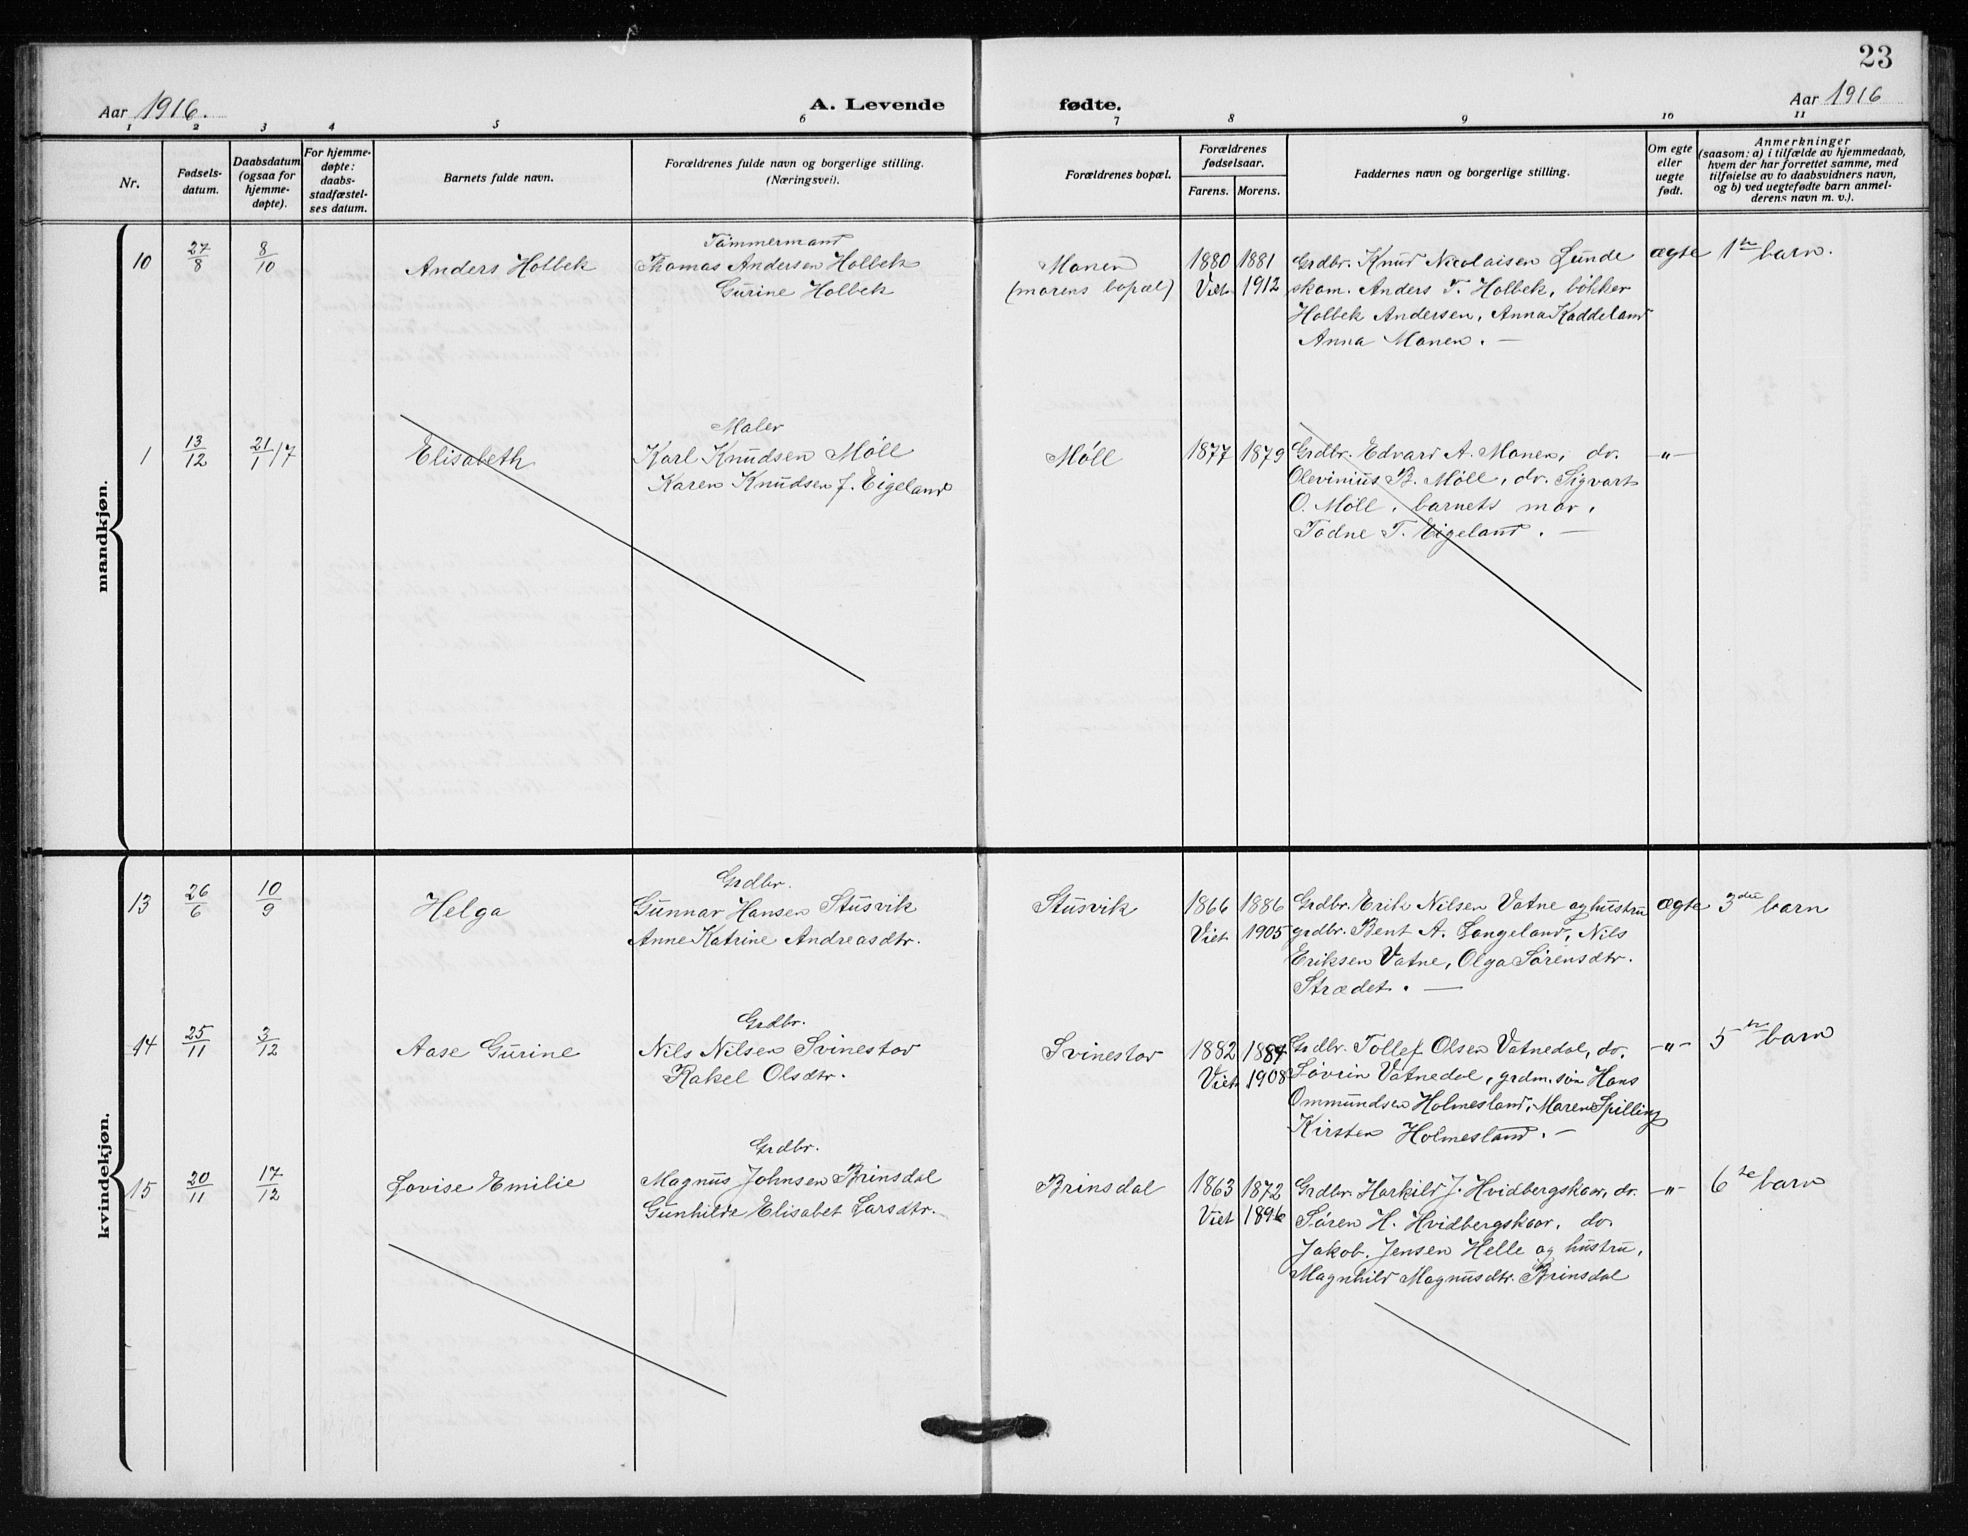 23
Aar 1916.
A. Levende
fødte.
Aar 1916
1 2 3 4 5 6 7 8 9 10 11
Nr.
Fødsels-
datum.
Daabsdatum
(ogsaa for
hjemme-
døpte).
For hjemme-
døpte:
daabs-
stadfæstel-
ses datum.
Barnets fulde navn.
Forældrenes fulde navn og borgerlige stilling.
(Næringsvei).
Forældrenes bopæl.
Forældrenes
fødselsaar.
Farens. Morens.
Faddernes navn og borgerlige stilling.
Om egte
eller
uegte
født.
Anmerkninger
(saasom: a) i tilfælde av hjemmedaab,
hvem der har forrettet samme, med
tilføielse av to daabsvidners navn,
og b) ved uegtefødte barn anmel-
derens navn m. v.).
mandkjøn.
10 27/8 8/10 Anders Holbek
Tømmermand
Thomas Andersen Holbek
Gurine Holbek
Monen
(morens bopæl)
1880 1881
Viet 1912
Grdbr. Knud Nicolaisen Lunde
skom. Anders T. Holbek, bøkker
Holbek Andersen, Anna Kaddeland
Anna Monen. —
ægte 1te barn.
1 13/12 21/1 17 Elisabeth
Maler
Karl Knudsen Møll
Karen Knudsen f. Eigeland
Møll
1877 1879
Grdbr. Edvard A. Monen, do.
Olevinius B. Møll, do. Sigvart
O. Møll, barnets mor,
Todne T. Eigeland. —
—"—
kvindekjøn.
13 26/6 10/9 Helga
Grdbr.
Gunnar Hansen Stusvik
Anne Katrine Andreasdtr.
Stusvik
1866 1886
Viet 1905
Grdbr. Erik Nilsen Vatne og hustru
grdbr. Bent A. Langeland, Nils
Eriksen Vatne, Olga Sørensdtr.
Strædet. —
ægte 3die barn
14 25/11 3/12 Aase Gurine
Grdbr.
Nils Nilsen Svinestov
Rakel Olsdtr.
Svinestov
1882 1884
Viet 1908
Grdbr. Tollef Olsen Vatnedal, do.
Vatnedal, grdm. søn Hans
Ommundsen Holmesland, Maren Spilling
Kirsten Holmesland. —
—"— 5te barn
15 20/11 17/12 Lovise Emilie
Grdbr.
Magnus Johnsen Brinsdal
Gunhilde Elisabet Larsdtr.
Brinsdal
1863 1872
Viet 1896
Grdbr. Harkild J. Hvidbergskaar, do.
Søren H. Hvidbergskaar, do
Jakob Jensen Helle og hustru,
Magnhild Magnusdtr. Brinsdal
—"— 6te barn